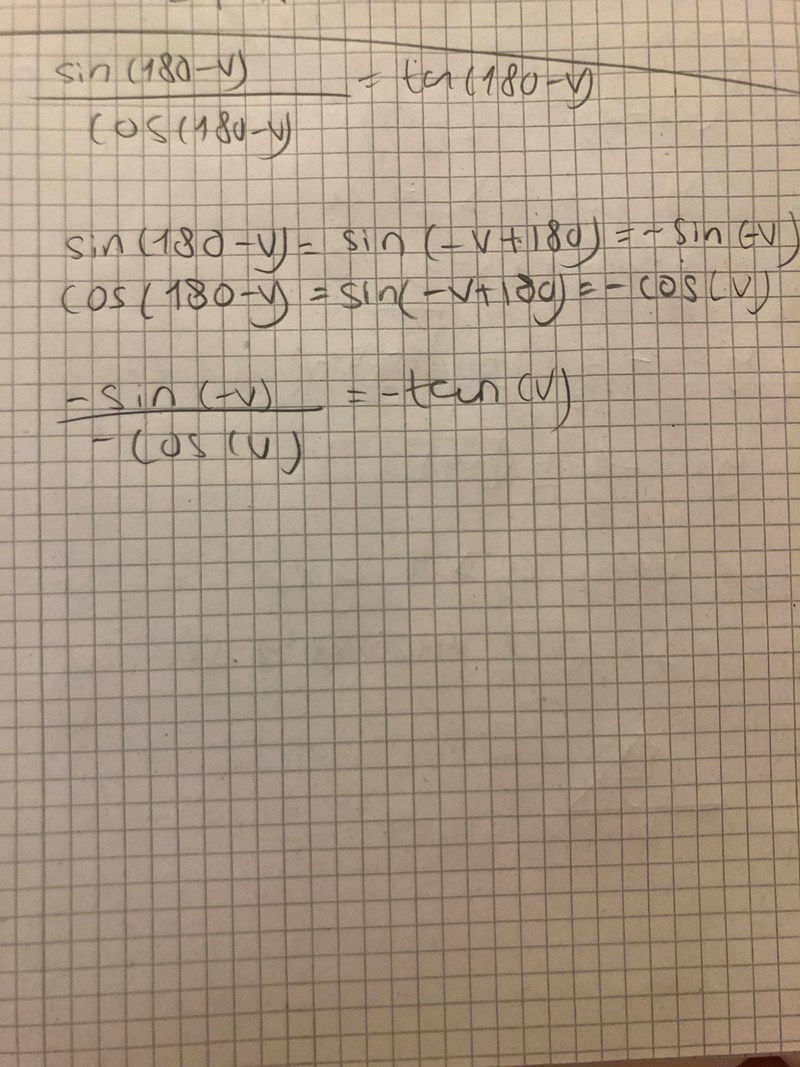 sin(180-v)
cos(180-v)
= tan(180-v)
sin(180-v) = sin(-v+180) = -sin(-v)
cos(180-v) = sin(-v+180) = -cos(v)
-sin(-v)
-cos(v)
= -tan(v)